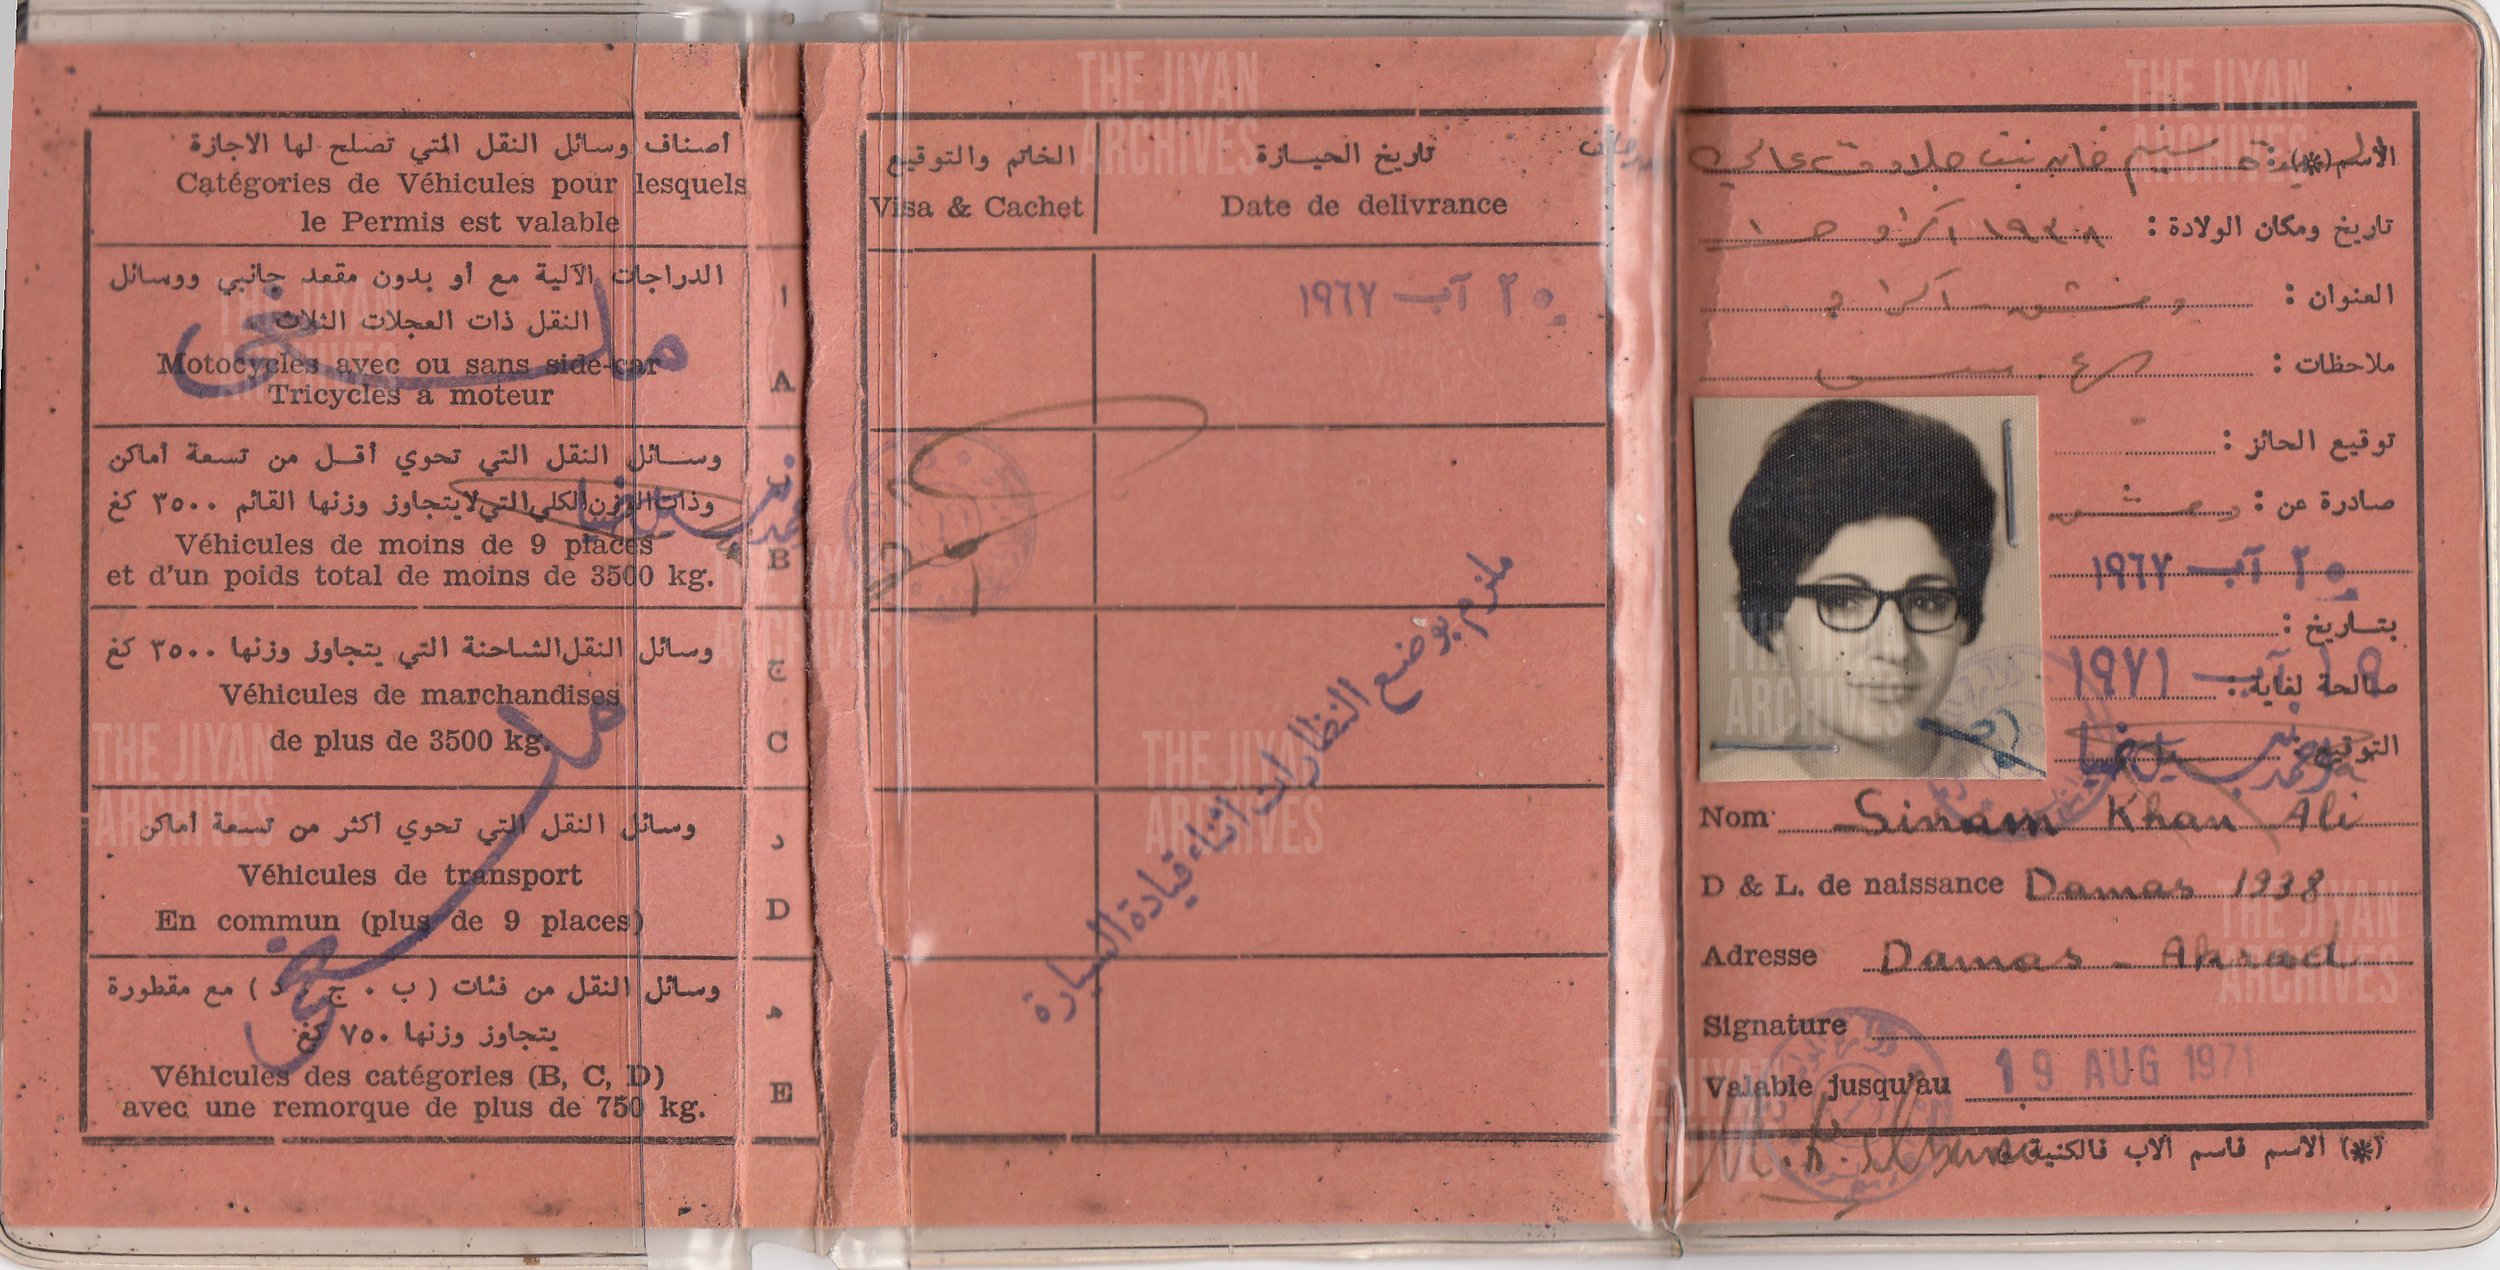 أصناف وسائل النقل التي تصلح لها الاجازة
Catégories de Véhicules pour lesquels
le Permis est valable
الدراجات الآلية مع أو بدون مقعد جانبي ووسائل
النقل ذات العجلات الثلاث
Motocycles avec ou sans side-car
Tricycles a moteur
ا
A
ملغى
وسائل النقل التي تحوي أقل من تسعة أماكن
وذات الوزن الكلي التي لا يتجاوز وزنها القائم ٣٥٠٠ كغ
Véhicules de moins de 9 places
et d'un poids total de moins de 3500 kg.
ب
B
وسائل النقل الشاحنة التي يتجاوز وزنها ٣٥٠٠ كغ
Véhicules de marchandises
de plus de 3500 kg.
ج
C
وسائل النقل التي تحوي أكثر من تسعة أماكن
Véhicules de transport
En commun (plus de 9 places)
د
D
ملغى
وسائل النقل من فئات ( ب . ج . د ) مع مقطورة
يتجاوز وزنها ٧٥٠ كغ
Véhicules des catégories (B, C, D)
avec une remorque de plus de 750 kg.
ه
E
الخاتم والتوقيع
Visa & Cachet
تاريخ الحيازة
Date de delivrance
٢٠ آب ١٩٦٧
ملزم بوضع النظارات اثناء قيادة السيارة
الاسم (*) : سينم خان بنت جلادت عالي
تاريخ ومكان الولادة : ١٩٣٨ اكراد
العنوان : دمشق - اكراد
ملاحظات :
توقيع الحائز :
صادرة عن : دمشق
٢٠ آب ١٩٦٧
بتاريخ :
صالحة لغاية : ١٩ آب ١٩٧١
التوقيع :
Nom Sinam Khan Ali
D & L. de naissance Damas 1938
Adresse Damas - Akrad
Signature
Valable jusqu'au 19 AUG 1971
(*) الاسم فاسم الاب فالكنية
THE JIYAN
ARCHIVES